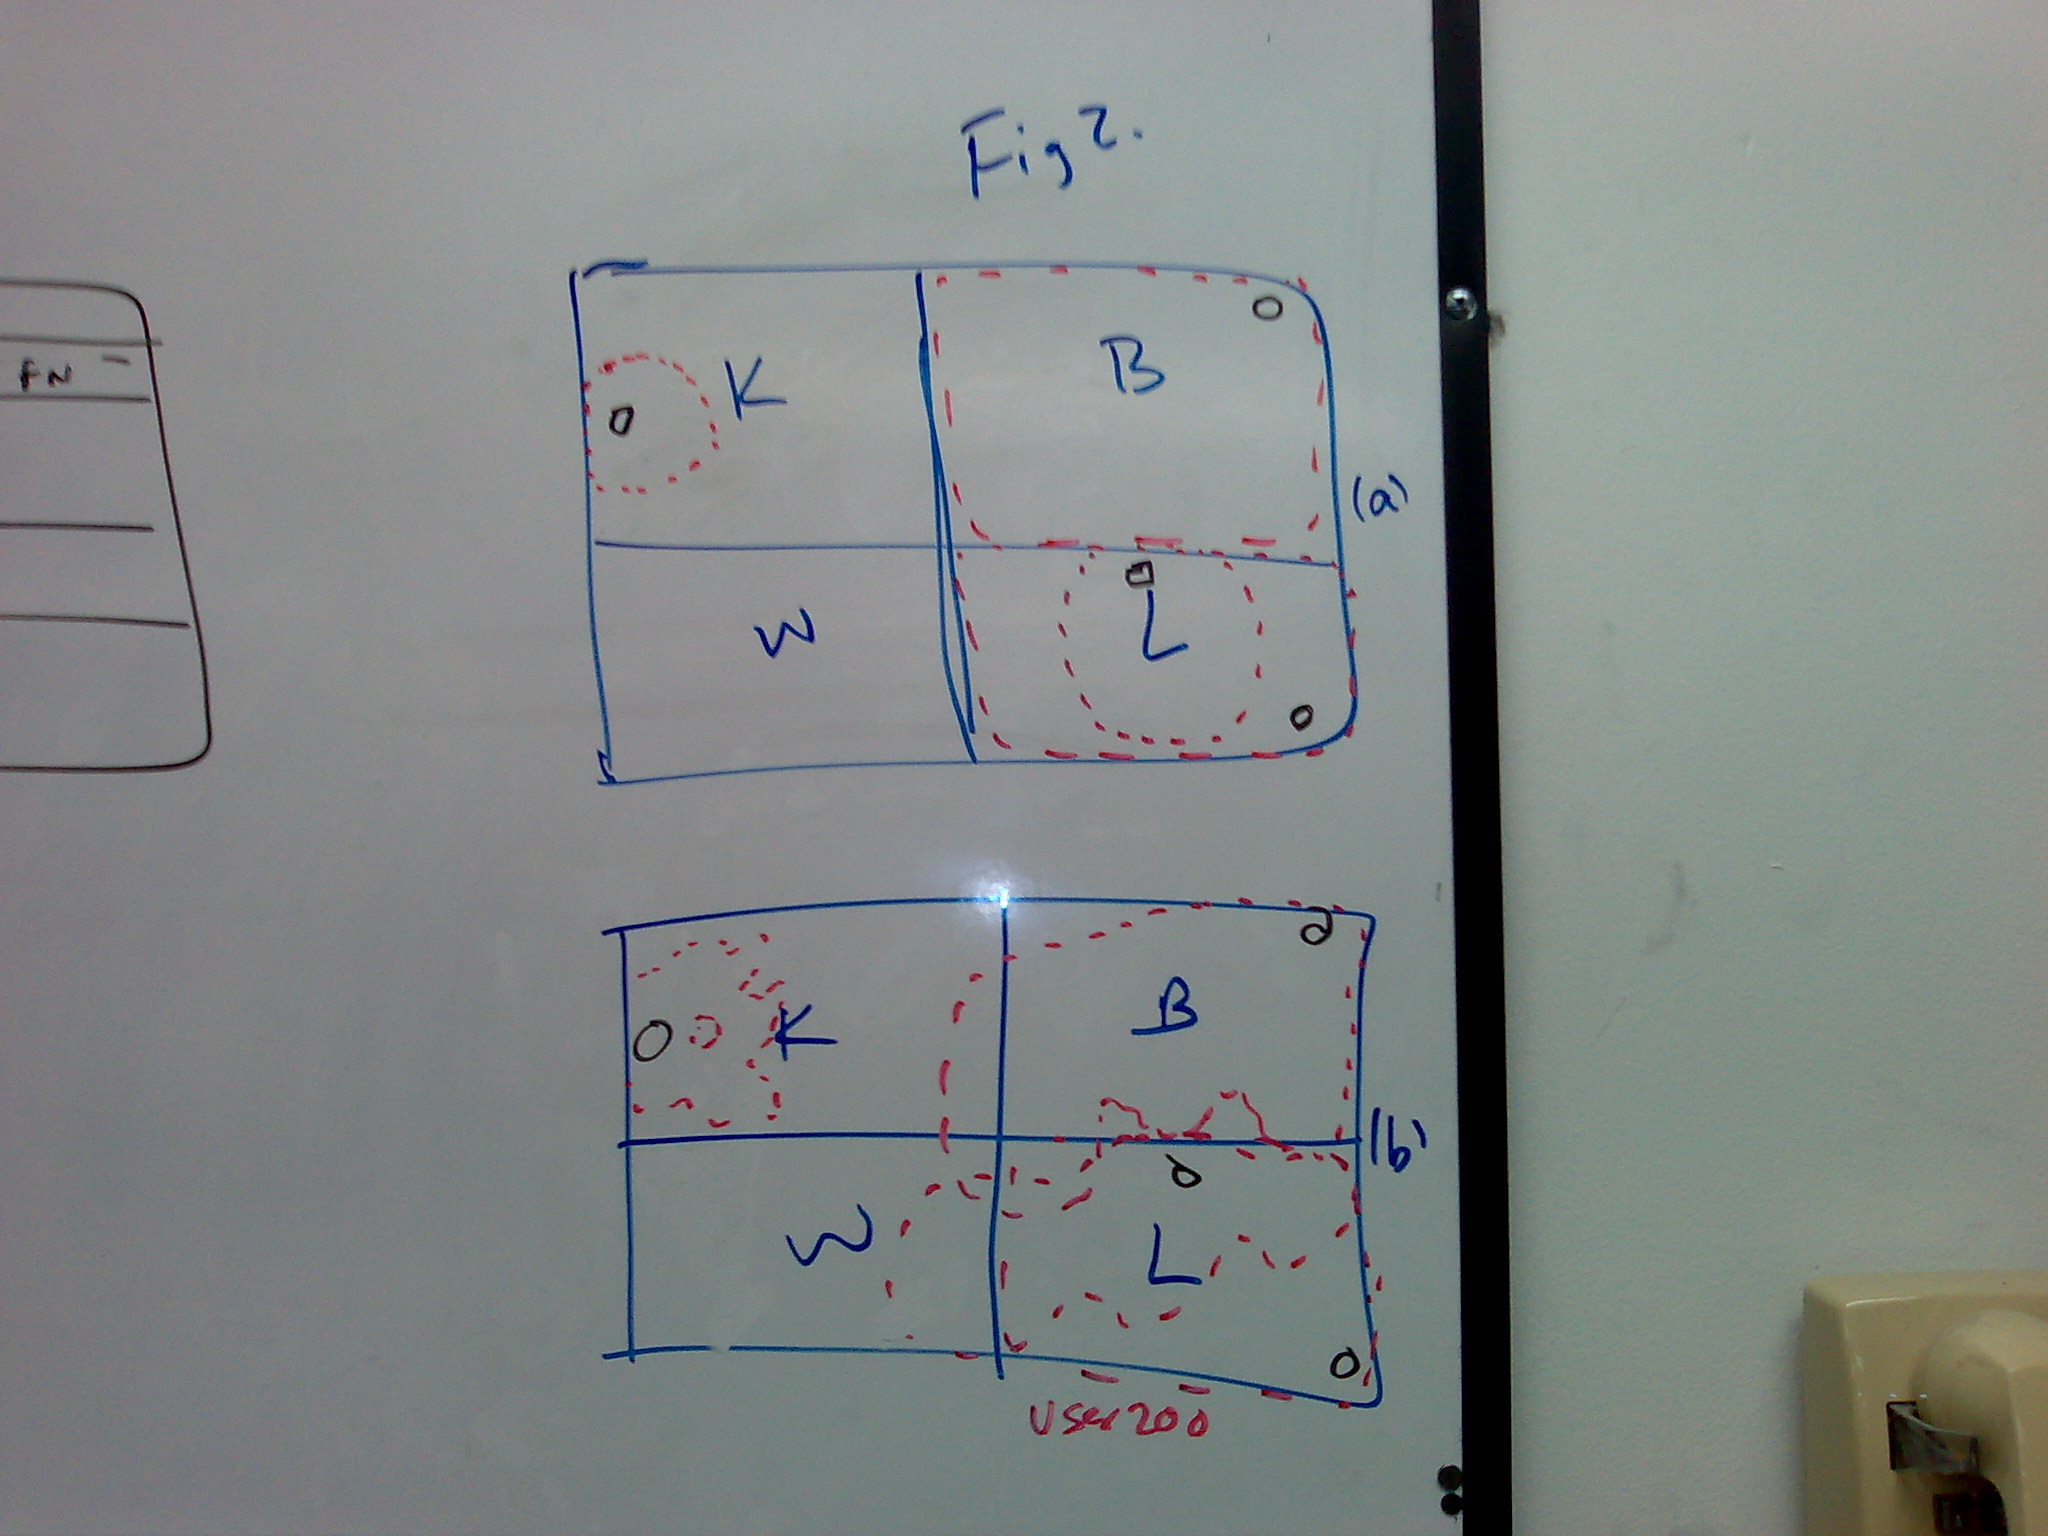 Fig 2.
FN -
K
B
(a)
W
L
K
B
(b)
W
L
user 200